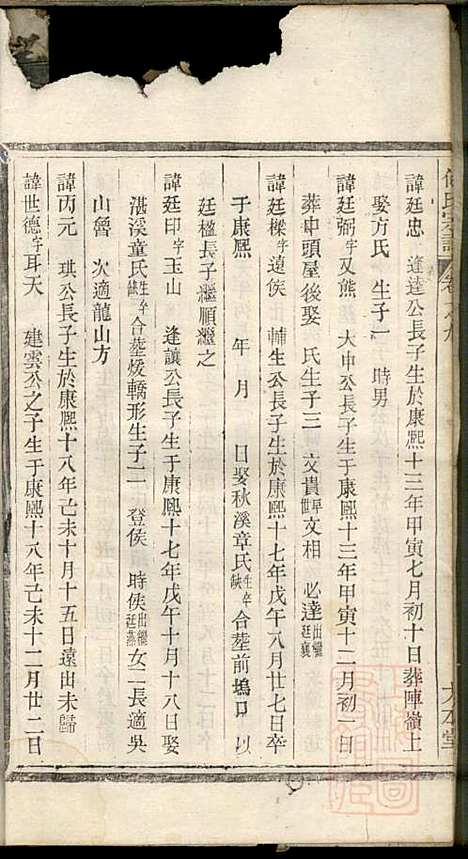 氏宗譜 卷
大本堂
諱廷忠 逢逵公長子生於康熙十三年甲寅七月初十日葬陣嶺上
娶方氏 生子一 時男
諱廷弼字又熊 大申公長子生于康熙十三年甲寅十二月初一日
葬中頭屋後娶 氏生子三 文貴早世文相 必達出繼廷襄
諱廷樑字遠侯 輔生公長子生於康熙十七年戊午八月廿七日卒
于康熙 年 月 日娶秋溪章氏生卒缺合塟前塢口 以
廷楹長子繼順繼之
諱廷印字玉山 逢讓公長子生于康熙十七年戊午十月十八日娶
湛溪童氏生卒缺合塟煖轎形生子二 登侯 時侯出繼廷蒸女二長適吳
山魯 次適龍山方
諱丙元 琪公長子生於康熙十八年己未十月十五日遠出未歸
諱世德字耳天 建雲公之子生于康熙十八年己未十二月廿二日